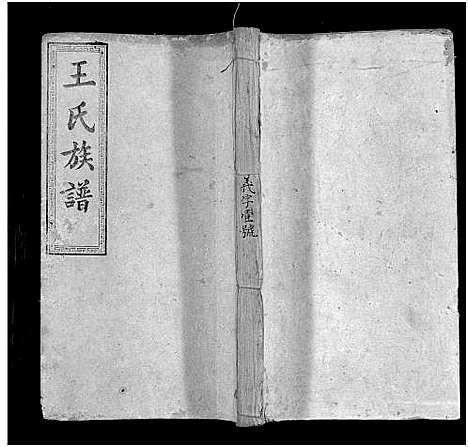 王氏族譜
義字壹號